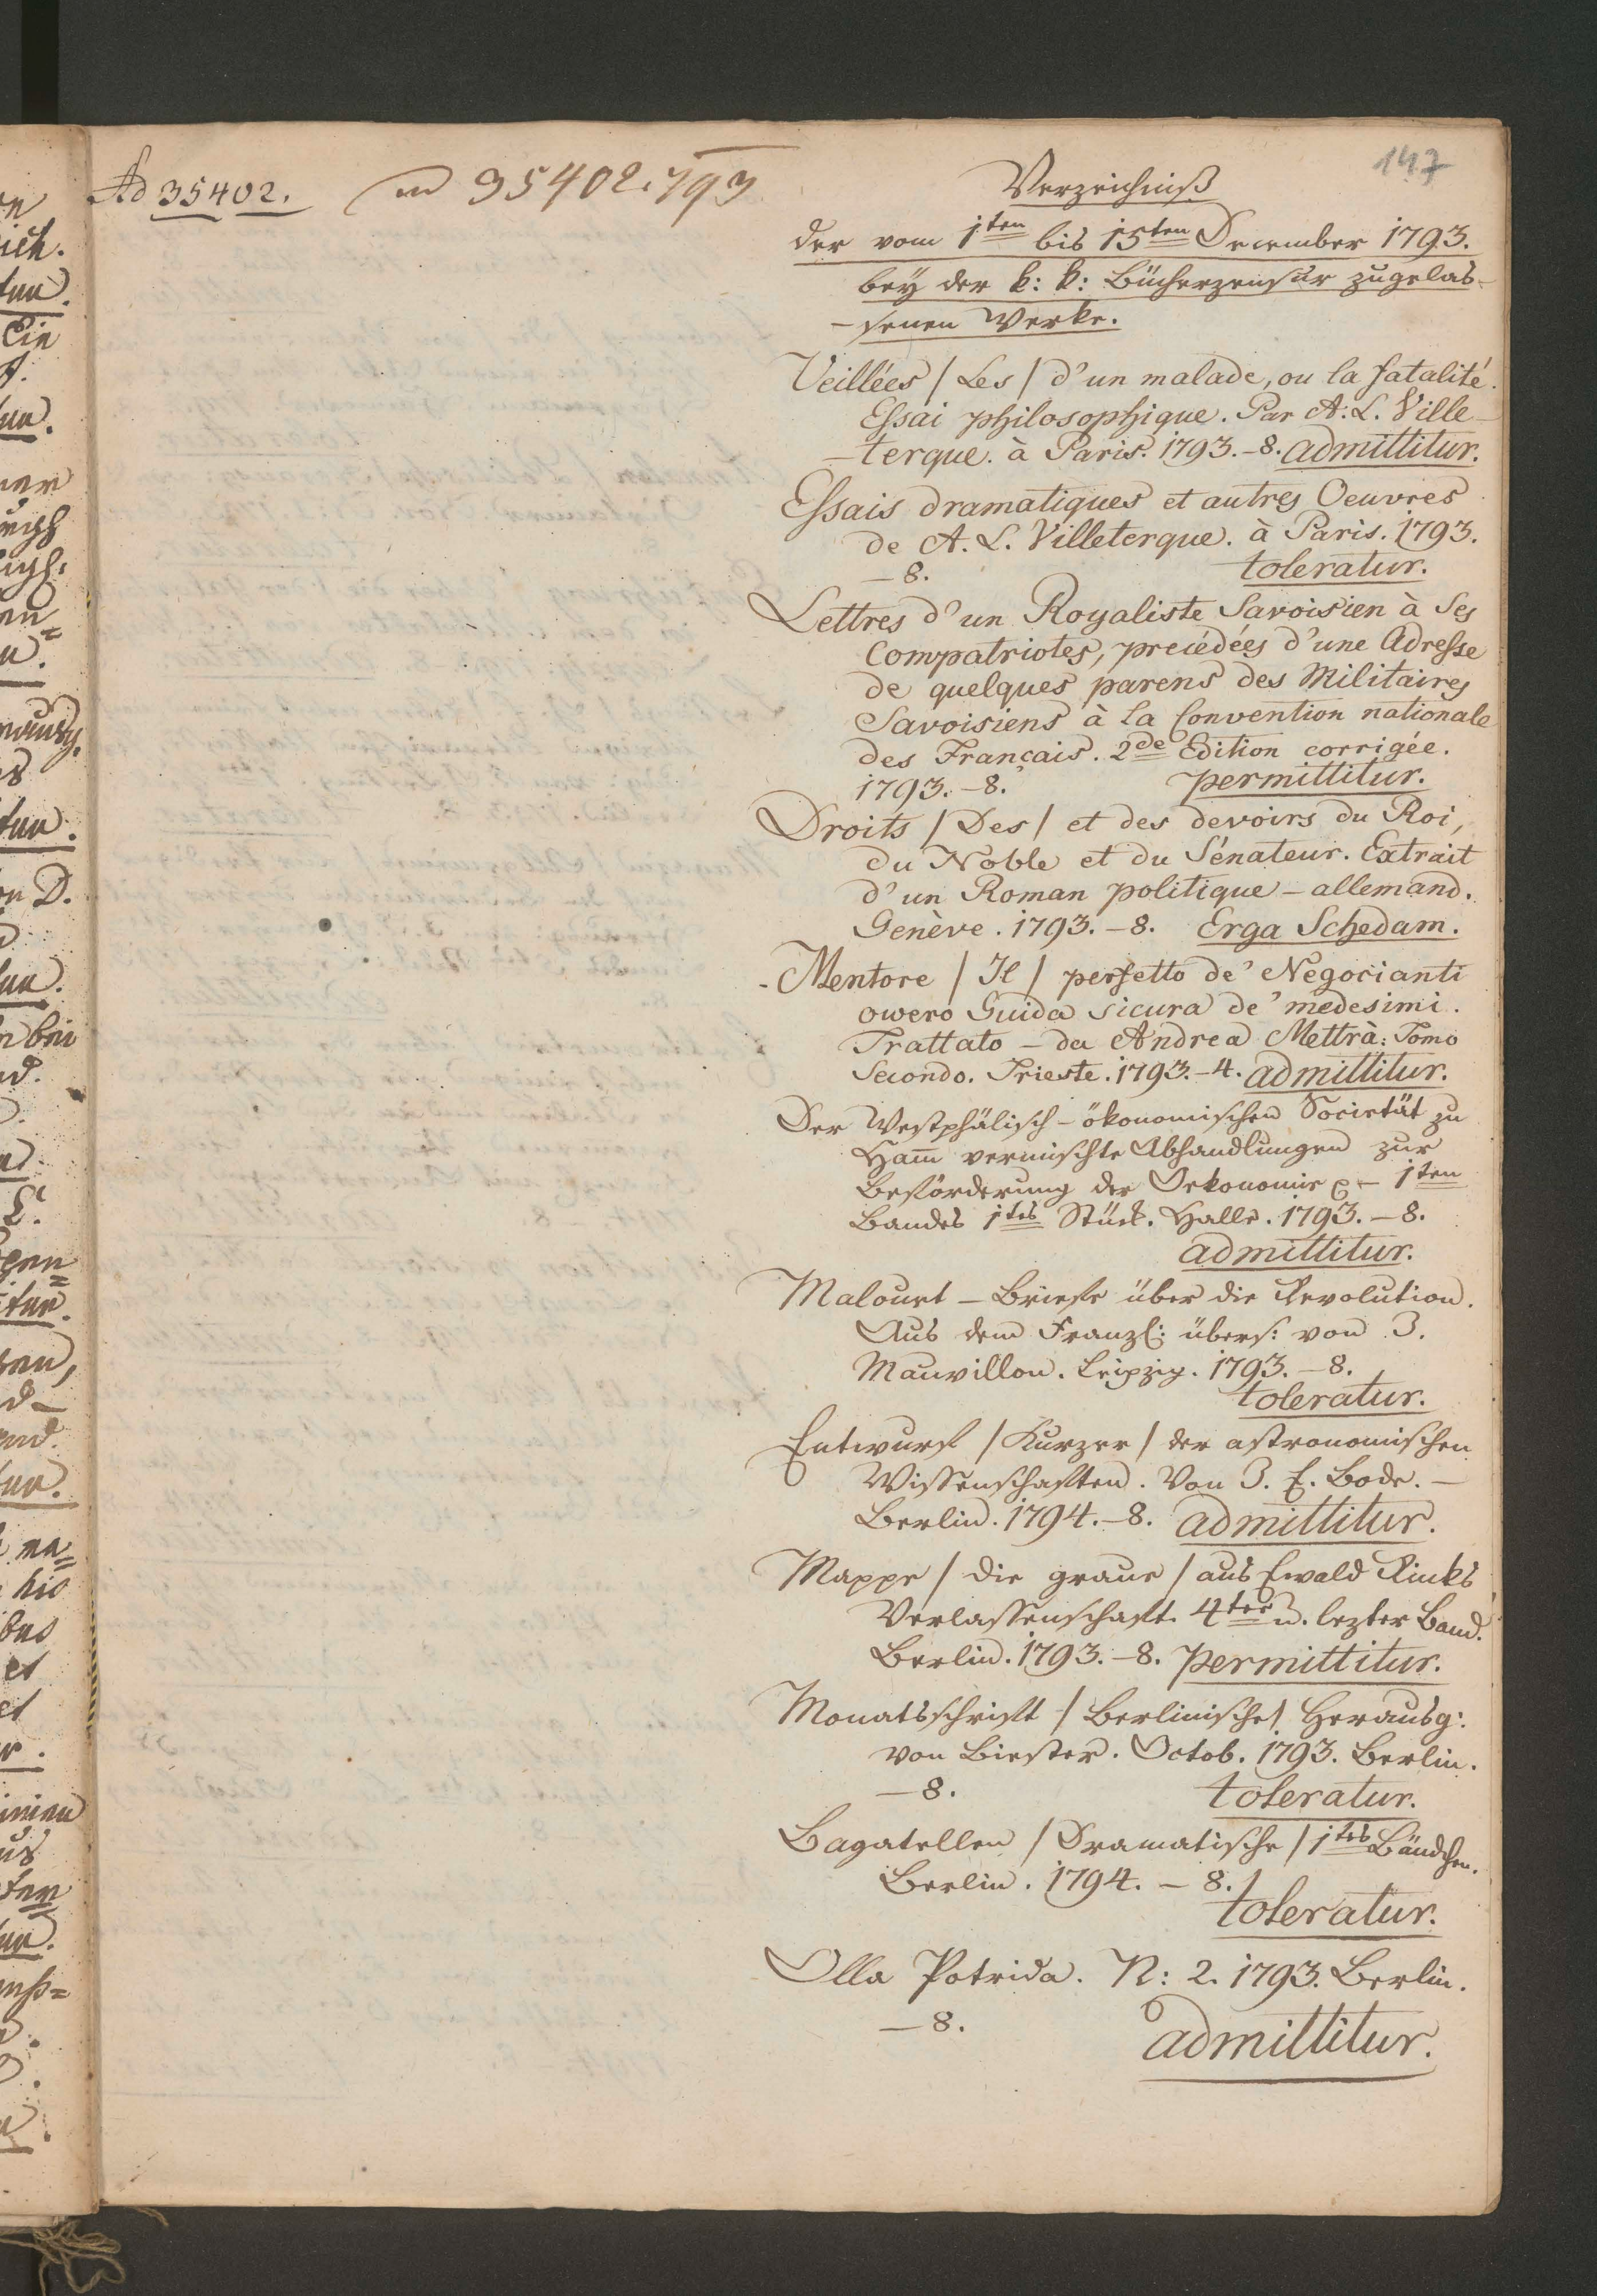 147
Ad 35402.
ad 35402.793
Verzeichniß
der vom 1ten bis 15ten December 1793.
bey der k: k: Bücherzensur zugelas-
-senen Werke.
Veillées / Les / d'un malade, ou la fatalité.
Essai philosophique. Par A. L. Ville-
-terque. à Paris. 1793. -8. admittitur.
Essais dramatiques et autres Oeuvres
de A. L. Villeterque. à Paris. 1793.
-8. toleratur.
Lettres d'un Royaliste Savoisien à Ses
Compatriotes, precédées d'une Adresse
de quelques parens des Militaires
Savoisiens à la Convention nationale
des Français. 2de Edition corrigée.
1793. -8. permittitur.
Droits / Des / et des devoirs du Roi,
du Noble et du Sénateur. Extrait
d'un Roman politique - allemand.
Genève. 1793. -8. Erga Schedam.
Mentore / Il / perfetto de' Negocianti
owero Guida sicura de' medesimi.
Trattato - da Andrea Mettrà: Tomo
Secondo. Trieste. 1793. -4. admittitur.
Der Westphälisch-ökonomischen Societät zu
Ham̅ vermischte Abhandlungen zur
Beförderung der Oekonomie - 1ten
Bandes 1tes Stück. Halle. 1793. -8.
admittitur.
Malouet - Briefe über die Revolution.
Aus dem Franzs: übers: von J.
Mauvillon. Leipzig. 1793. -8.
toleratur.
Entwurf / Kurzer / der astronomischen
Wissenschaften. Von J. E. Bode. -
Berlin. 1794. -8. admittitur.
Mappe / die graue / aus Ewald Rinks
Verlassenschaft. 4ter u. lezter Band.
Berlin. 1793. -8. permittitur.
Monatsschrift / Berlinische / Herausg:
von Biester. Octob. 1793. Berlin.
-8. toleratur.
Bagatellen / Dramatische / 1tes Bändchen.
Berlin. 1794. -8.
toleratur.
Olla Potrida. N: 2. 1793. Berlin.
-8. admittitur.